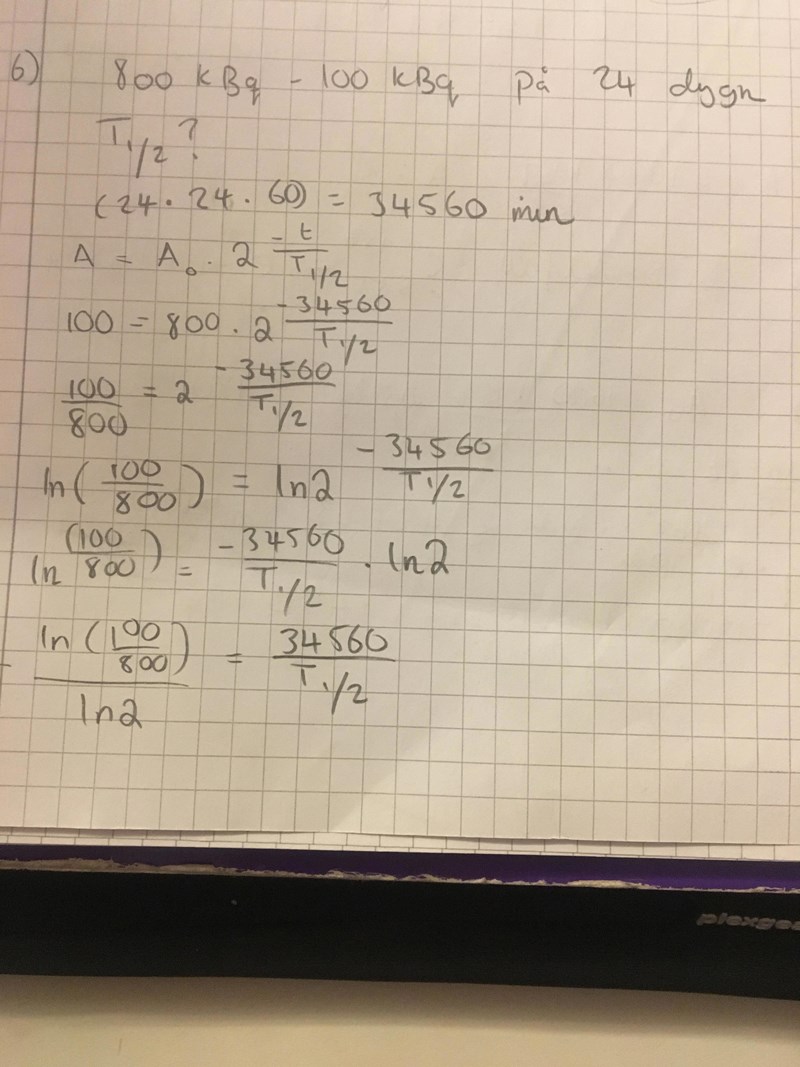 6) 800 kBq - 100 kBq på 24 dygn
T1/2 ?
(24 · 24 · 60) = 34560 min
A = A₀ · 2^(-t/T1/2)
100 = 800 · 2^(-34560/T1/2)
100/800 = 2^(-34560/T1/2)
ln(100/800) = ln2^(-34560/T1/2)
ln(100/800) = -34560/T1/2 · ln2
- ln(100/800)/ln2 = 34560/T1/2